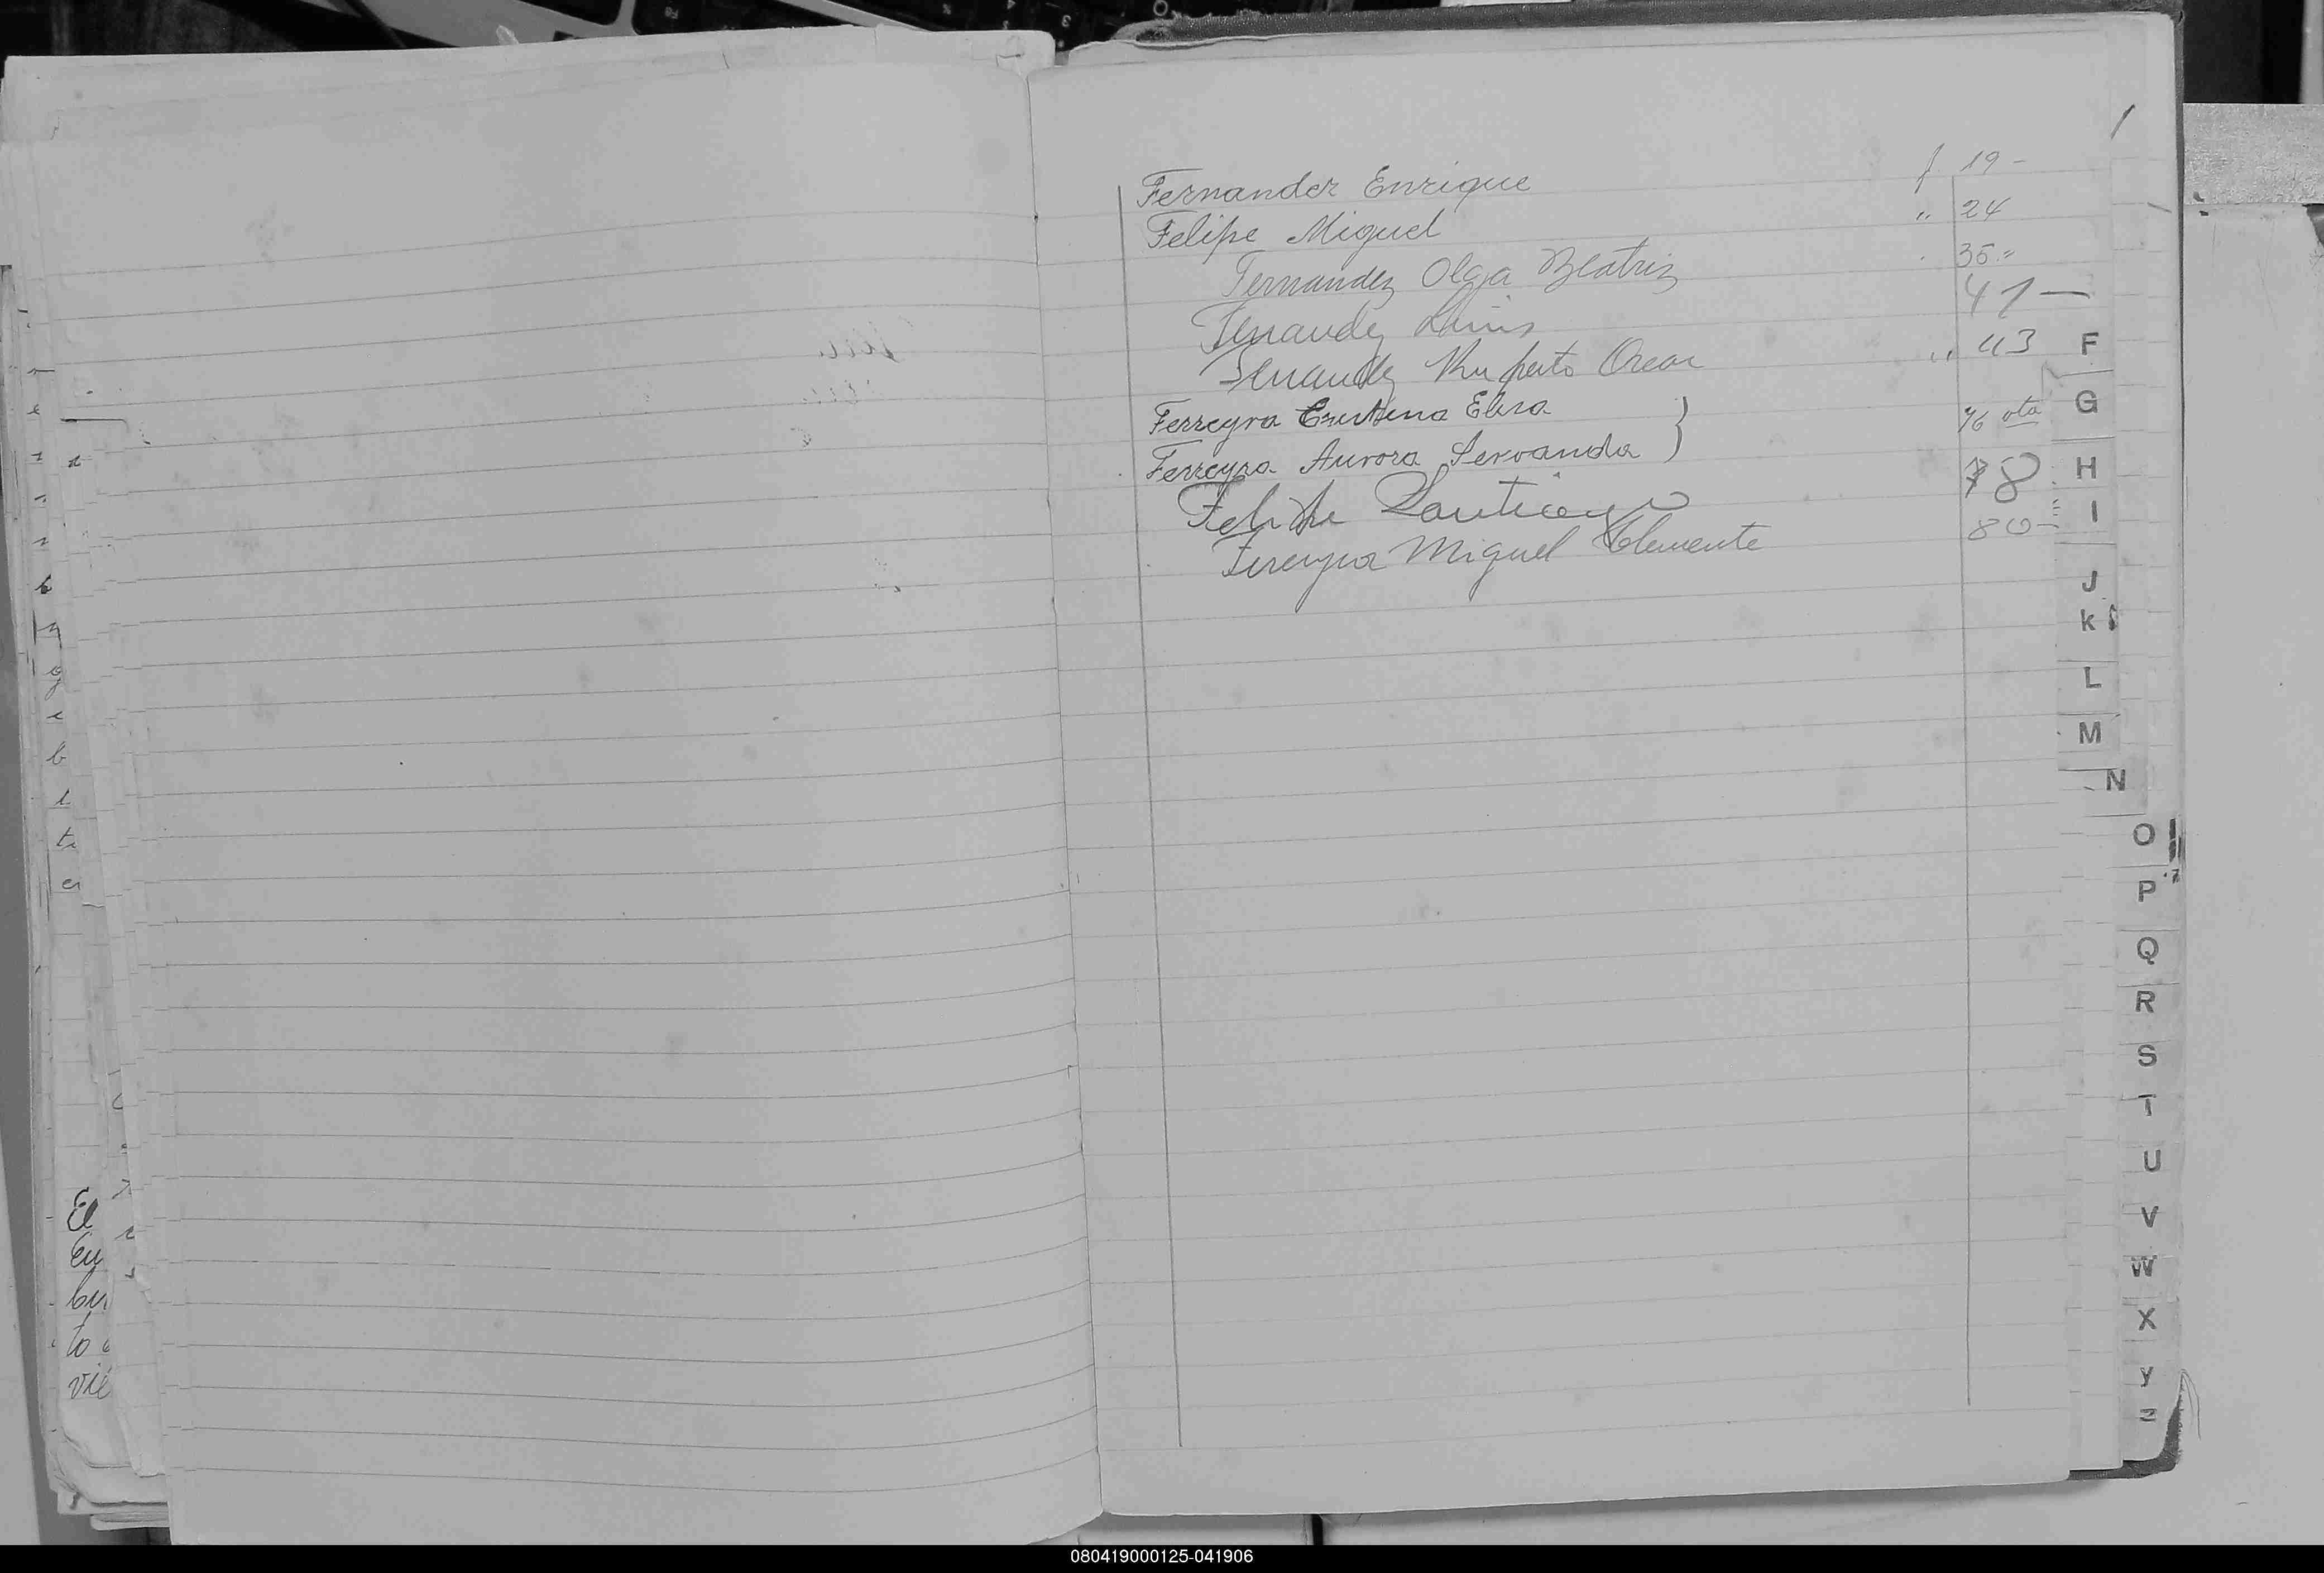 Fernandez Enrique f 19-
Felipe Miguel " 24
Fernandez Olga Beatriz 35"
Fernandez Luis 41-
Fernandez Ruperto Oscar " 43
Ferreyra Cristina Elisa 76 vta
Ferreyra Aurora Servanda }
Felipe Santiago 78
Ferreyra Miguel Clemente 80-
F
G
H
I
J
K
L
M
N
O
P
Q
R
S
T
U
V
W
X
Y
Z
El
En
bu
to
vie
080419000125-041906